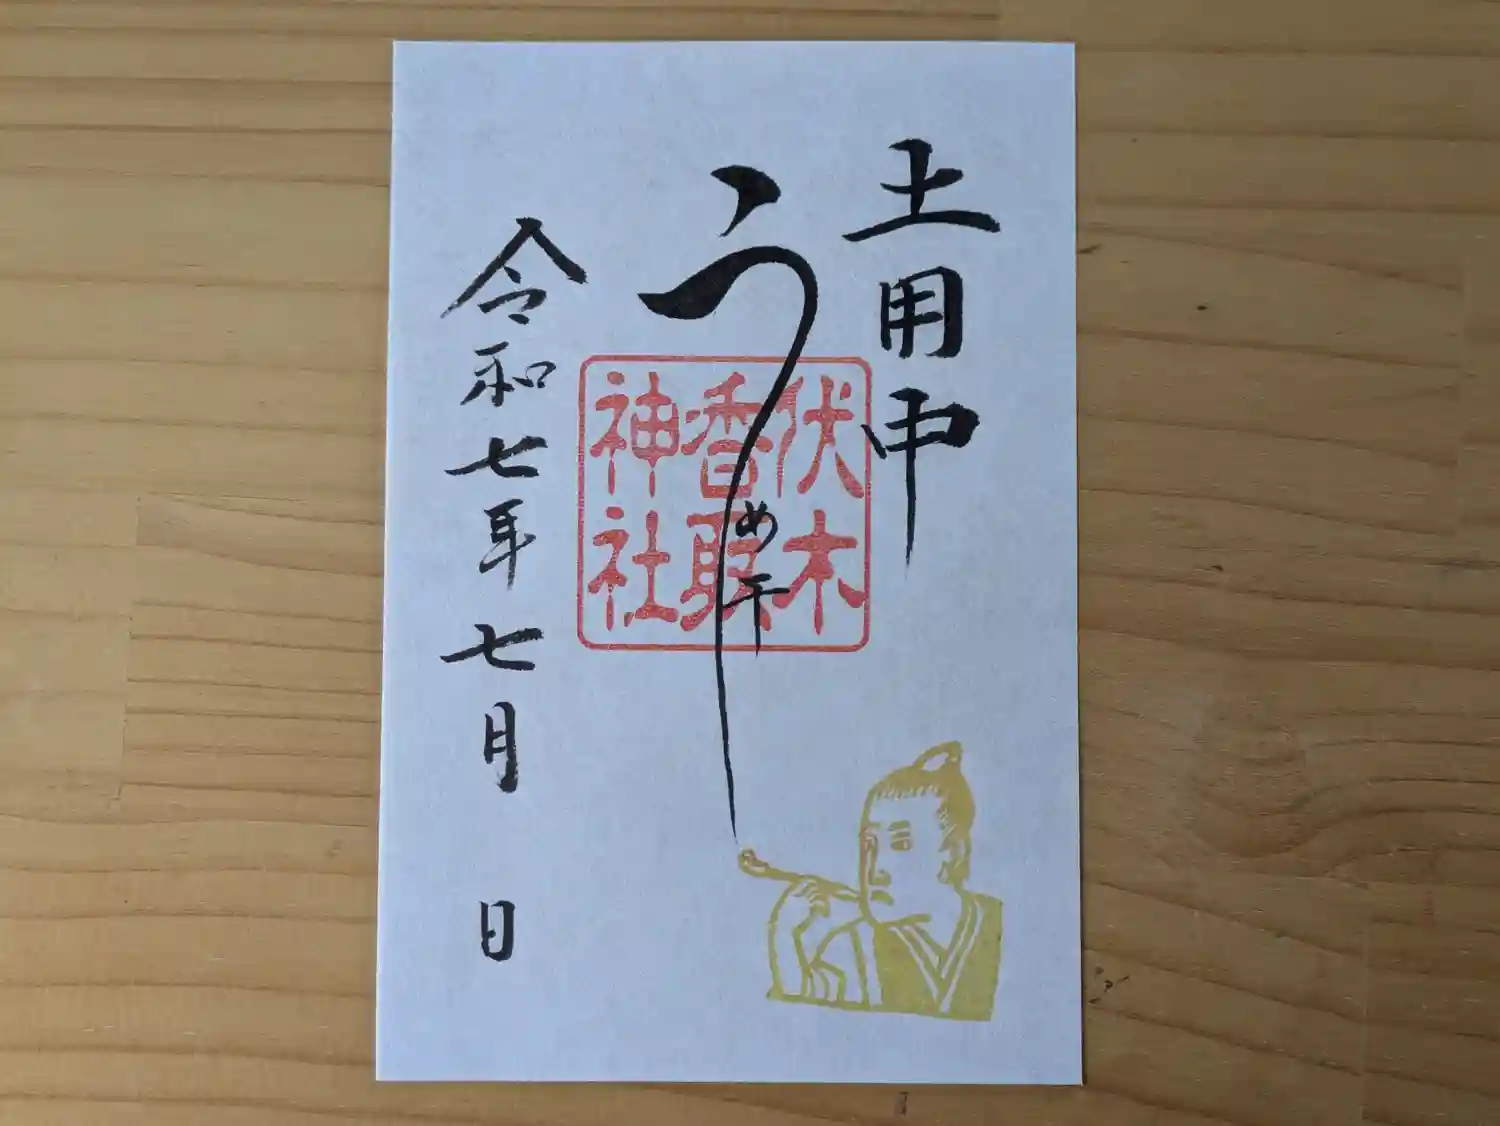 土用中
うめ干
伏木
香取
神社
令和七年七月 日